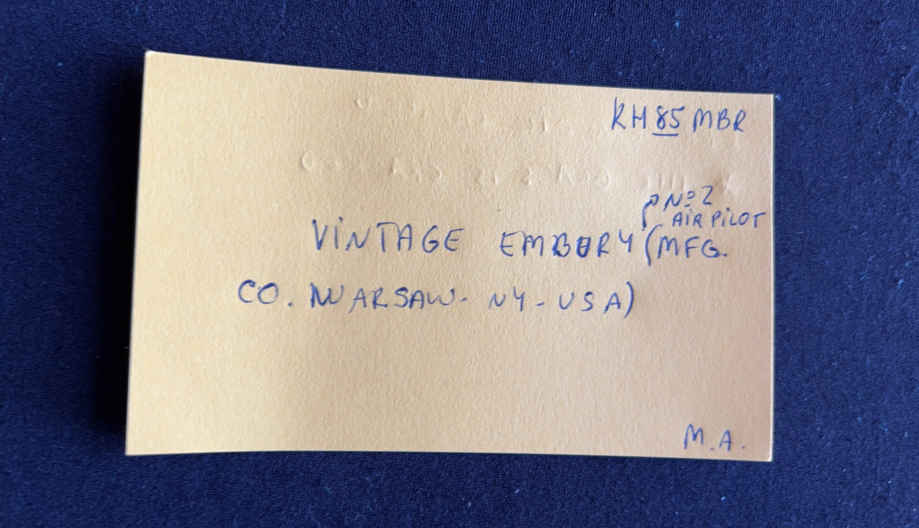 KH85MBR
No2
AIR PILOT
VINTAGE EMBURY (MFG.
CO. WARSAW - NY - USA)
M.A.